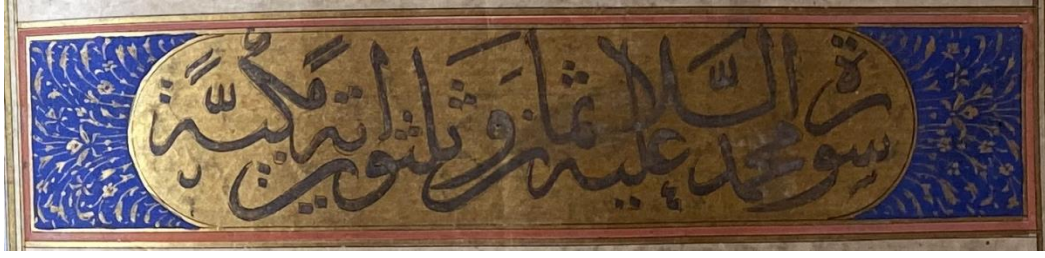 سورة محمد عليه السلام ثمان وثلثون اية مكية